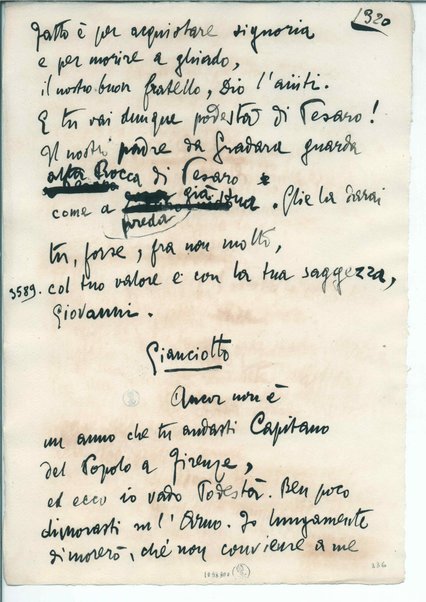 1320
Fatto è per acquistare signoria
e per morire a ghiado,
il nostro buon fratello, Dio l'aiuti.
E tu vai dunque podestà di Pesaro!
Il nostro padre da Gradara guarda
alla Rocca di Pesaro
come a già sua. Glie la darai
preda
tu, forse, fra non molto,
3589. col tuo valore e con la tua saggezza,
Giovanni.
Gianciotto
Ancor non è
un anno che tu andasti Capitano
del Popolo a Firenze,
ed ecco io vado Podestà. Ben poco
dimorasti su l'Arno. Io lungamente
dimorerò, ché non conviene a me